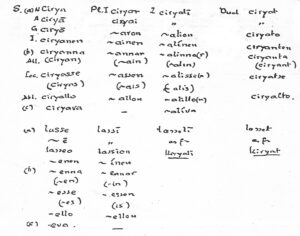 S. (a) N Cirya Pl. I Ciryar 2 ciryalī Dual ciryat
A Ciryā ciryai " "
G ciryō ~aron ~alion ciryato
I. ciryanen ~ainen ~alínen ciryanten
(b) ciryanna ~annar ~alinna(r) ciryanta
All. (ciryan) (~ain) (~alin) (ciryant)
Loc. ciryasse ~assen ~alisse(n) ciryatse
(ciryas) (~ais) (~alis)
Abl. ciryallo ~allon ~alillo(n) ciryalto.
(c) ciryava — ~alíva
(a) lasse lassī lasselī lasset
~ē "
lasseo lassion
~enen ~ínen
(b) ~enna ~ennar
(~en) (~in)
~esse ~essen
(~es) (is)
~ello ~ellon
(c) ~eva. —